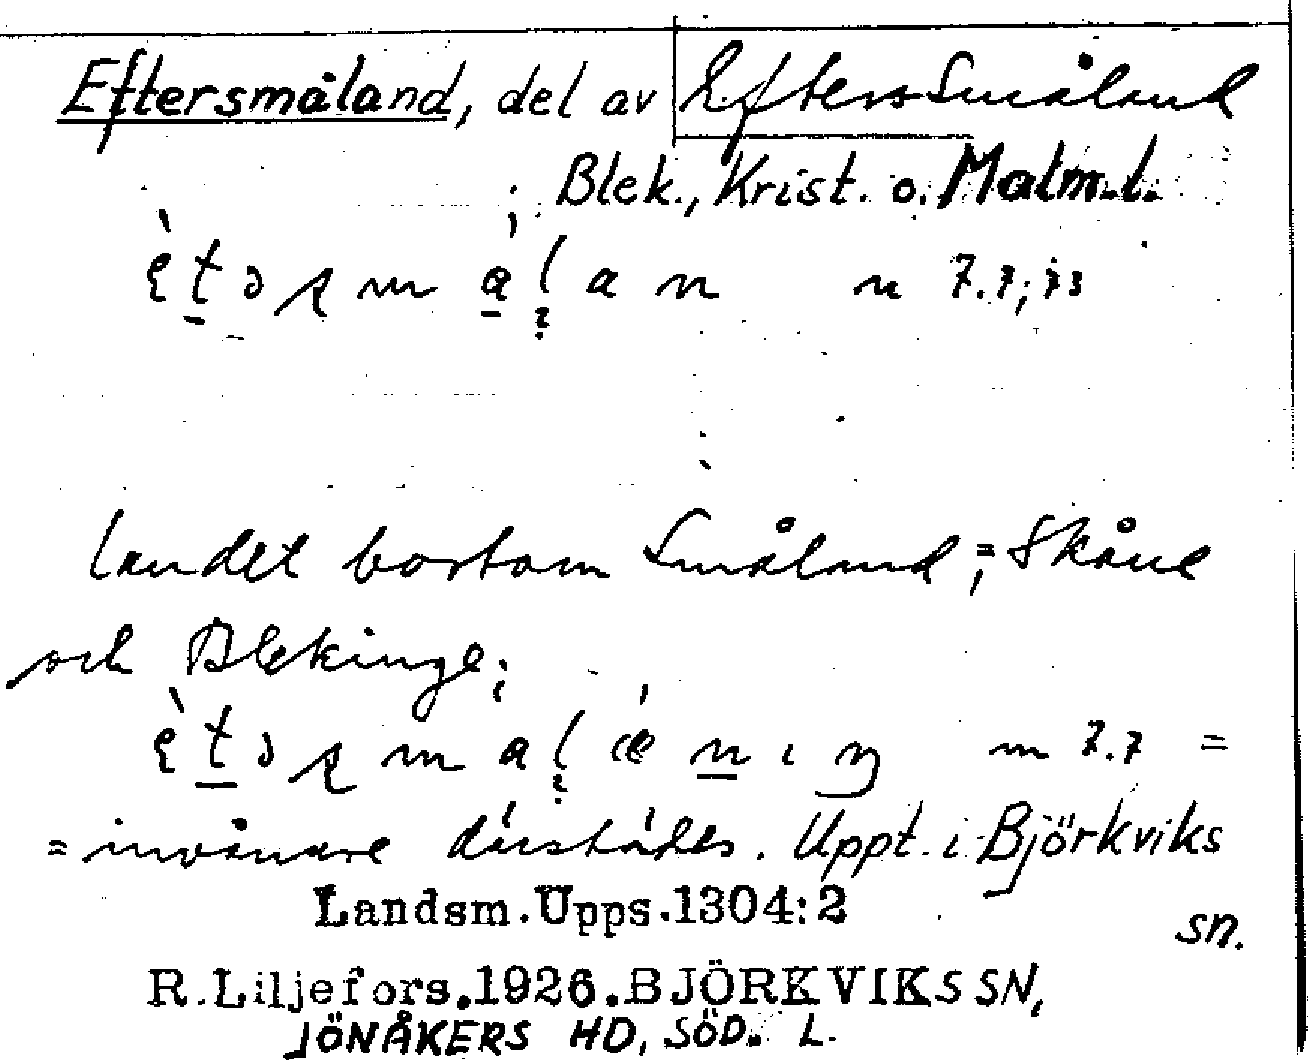 Eftersmåland, del av Efters Småland
; Blek., Krist. o. Malm.l.
n 7.7; 73
landet bortom Småland; = Skåne
och Blekinge;
m 7.7 =
= invånare därstädes. Uppt. i Björkviks
sn.
Landsm.Upps.1304:2
R.Liljefors.1926.BJÖRKVIKS SN,
JÖNÅKERS HD, SÖD. L.